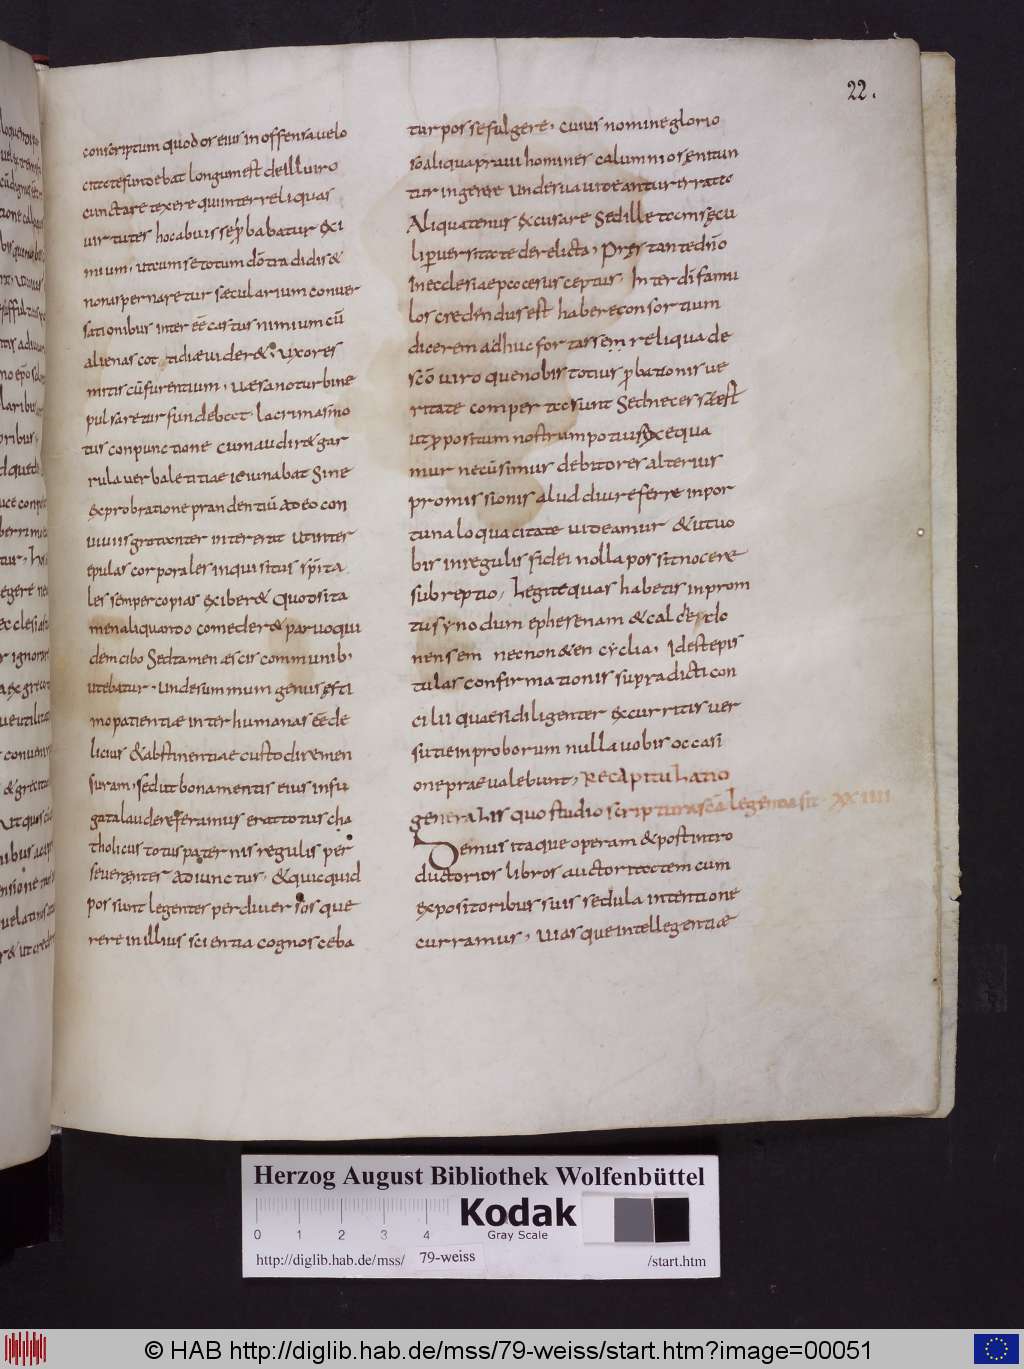 22.
conscriptum quod os eius in offensa uelo
citate fundebat longum est de illuiro
cunctare texere qui inter reliquas
uirtutes hoc abuisse ꝓbabatur exi
mium, ut cum se totum dōtradidis&
non aspernaretur sæcularium conuer
sationibus inter eē castus nimium cū
alienas cottidiæ uider& uxores
mitis cū furentium, uæsano turbine
pulsaretur fundebat lacrimas mo
tus conpunctione cum audir& gar
rula uerba letitiae ieiunabat Sine
exprobratione prandentiū adeo con
uiuiis gratanter intererat ut inter
epulas corporales inquisitus sp̄ita
les semper copias exiber& Quod si ta
men aliquando comeder& paruo qui
dem cibo Sed tamen æscis communib;
utebatur, unde summum genus ęsti
mo patientiæ inter humanas eē de
licius & abstinentiae custodire men
suram, sed ut bona mentis eius infu
gata laude referamus erat totus cha
tholicus totus paternis regulis per
seueranter adiunctus, & quicquid
possunt legentes per diuersos que
rere in illius scientia cognosceba
tur posse fulgere, cuius nomine glorio
so aliqua praui homines calumniose nitun
tur ingerere unde sua uideantur errata
Aliquatenus excusare Sed ille tam sęcu
li ꝑuersitate derelicta, Pręstante dn̄o
In ecclesiae pace susceptus, Inter dī famu
los credendus est habere consortium
dicerem adhuc fortassem reliqua de
scō uiro que nobis totius ꝓbationis ue
ritate comperta sunt Sed necessāe est
ut ꝓpositum nostrum potius exequa
mur ne cū simus debitores alterius
promissionis aliud diu referre inpor
tuna loquacitate uideamur & ut uo
bis in regulis fidei nolla possit nocere
subreptio, Legite quas habetis in prom
tu synodum ephesenam & calcedo
nensem necnon & encyclia, Id est epis
tulas confirmationis supradicti con
cilii quae si diligenter excurritis uer
sutie inproborum nulla uobis occasi
one praeualebunt, Recapitulatio
generalis quo studio scriptura scā legenda sit XXIIII
Demus itaque operam & post intro
ductorios libros auctoritatem cum
expositoribus suis sedula intentione
curramus, uias que intellegentiæ
Herzog August Bibliothek Wolfenbüttel
Kodak
Gray Scale
0 1 2 3 4
http://diglib.hab.de/mss/ 79-weiss /start.htm
© HAB http://diglib.hab.de/mss/79-weiss/start.htm?image=00051